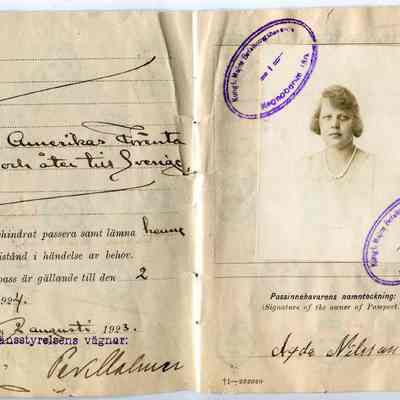 Amerikas Förenta
och åter till Sverige
hindrat passera samt lämna henne
istånd i händelse av behov.
pass är gällande till den 2
1924.
2 augusti 1923.
änsstyrelsens vägnar:
Kungl. Maj:ts Befallningshavande
Passinnehavarens namnteckning:
(Signature of the owner of Passport.)
Nilsson